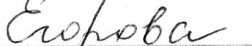 Егорова